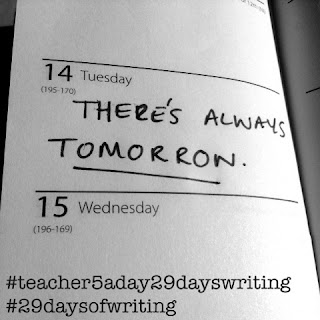 14 Tuesday
(195-170)
THERE'S ALWAYS
TOMORROW.
15 Wednesday
(196-169)
#teacher5aday29dayswriting
#29daysofwriting